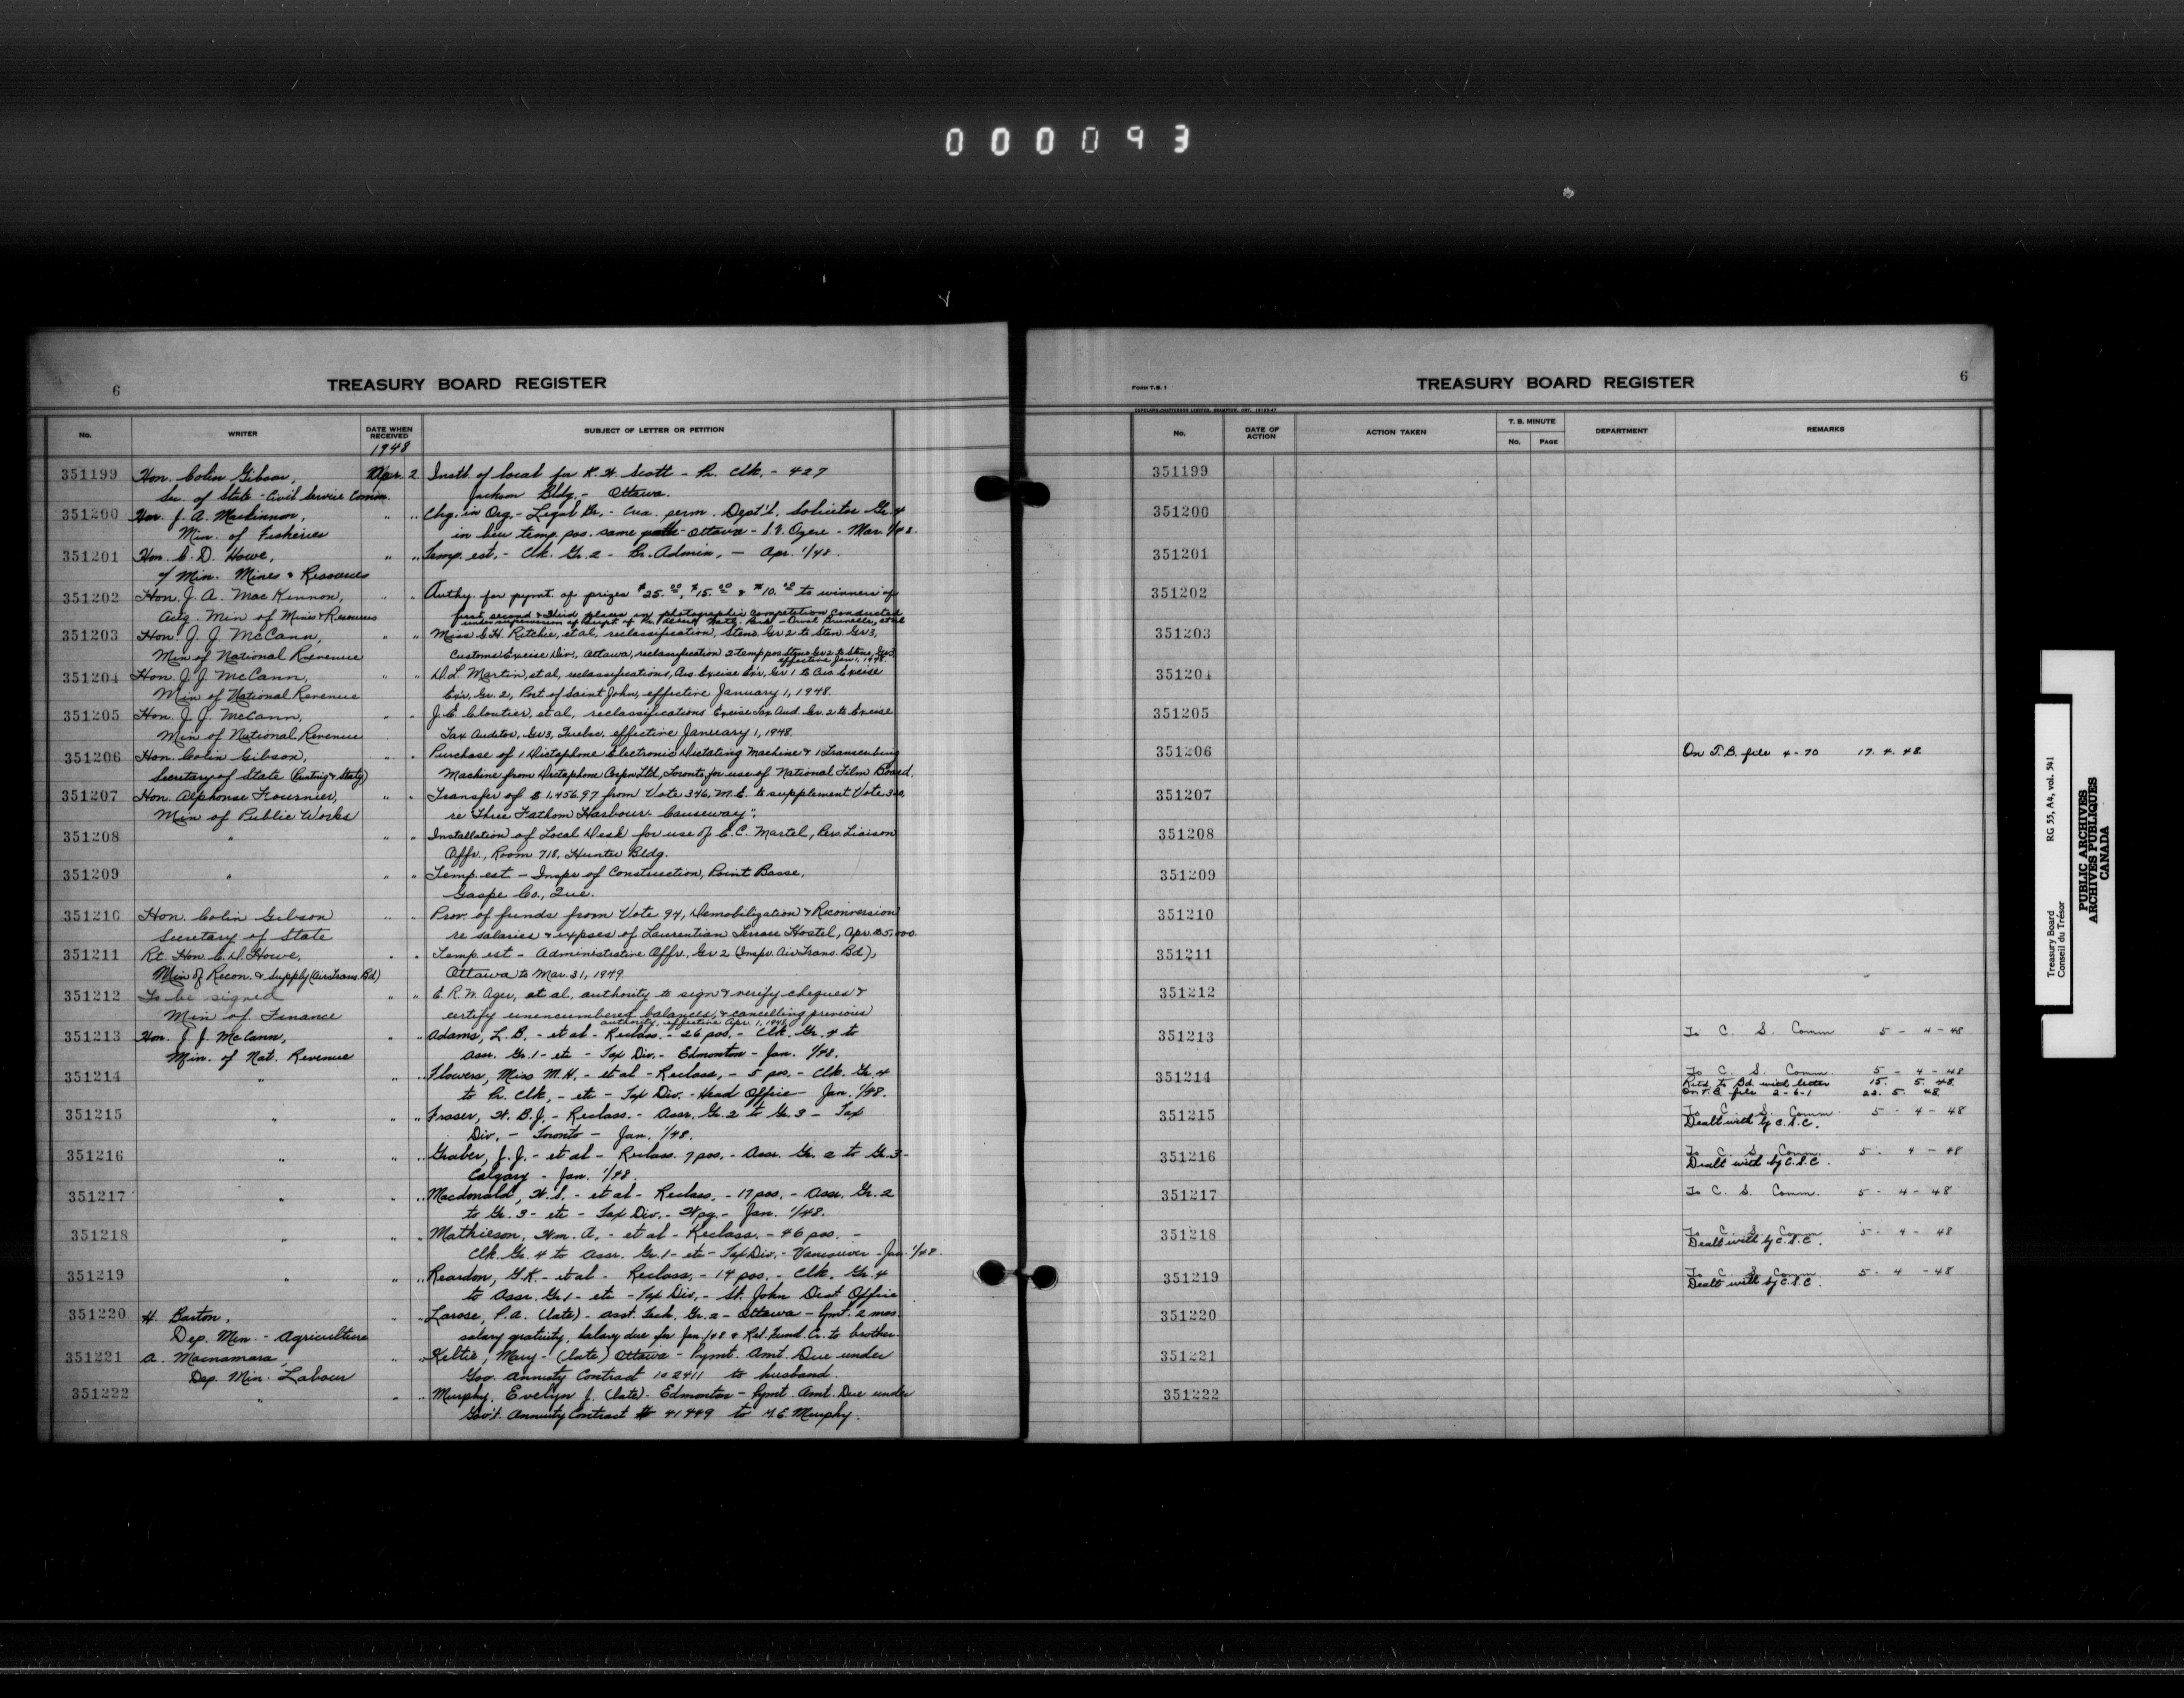 000093
6
TREASURY BOARD REGISTER
No.
WRITER
DATE WHEN RECEIVED
SUBJECT OF LETTER OR PETITION
1948
351199 Hon. Colin Gibson, Apr. 2 Instl. of local for K. W. Scott - Pr. Clk. - 427
Sec. of State - Civil Service Comm. Jackson Bldg. - Ottawa.
351200 Hon. J. A. MacKinnon, " " Chg. in Org. - Legal Br. - Cra. perm. Dept'l. Solicitor Gr. 4
Min. of Fisheries in lieu temp. pos. same - Ottawa - S.V. Ozere - Mar. 1/48.
351201 Hon. C. D. Howe, " " Temp. est. - Clk. Gr. 2 - Br. Admin. - Apr. 1/48.
Min. Mines & Resources
351202 Hon. J. A. MacKinnon, " " Authy. for pymt. of prizes $25.00, $15.00 & $10.00 to winners of
Actg. Min of Mines & Resources first second & third places in photographic competition conducted
under supervision of Supt of Pr. Albert Natl. Park -
351203 Hon. J. J. McCann, " " Miss G. H. Ritchie, et al, reclassification, Steno. Gr 2 to Sten. Gr 3,
Min of National Revenue Customs Excise Div., Ottawa, reclassification 2 temp pos Steno Gr 2 to Steno, Gr 3
effective Jan. 1, 1948.
351204 Hon. J. J. McCann, " " D. L. Martin, et al, reclassifications, Ass. Excise Ex'r, Gr 1 to Ass. Excise
Min of National Revenue Ex'r, Gr. 2, Port of Saint John, effective January 1, 1948.
351205 Hon. J. J. McCann, " " J. E. Cloutier, et al, reclassifications Excise Tax Aud. Gr. 2 to Excise
Min of National Revenue Tax Auditor, Gr 3, Quebec, effective January 1, 1948.
351206 Hon. Colin Gibson, " " Purchase of 1 Dictaphone Electronic Dictating Machine & 1 Transcribing
Secretary of State (Printing & Staty) Machine from Dictaphone Corpn Ltd, Toronto, for use of National Film Board.
351207 Hon. Alphonse Fournier, " " Transfer of $1,456.97 from Vote 346, M.E. to supplement Vote 300,
Min of Public Works re "Three Fathom Harbour - Causeway".
351208 " " " Installation of Local Desk for use of E. C. Martel, Pers. Liaison
Offr., Room 718, Hunter Bldg.
351209 " " " Temp. est - Inspr of Construction, Point Basse,
Gaspe Co., Que.
351210 Hon. Colin Gibson " " Prov. of funds from Vote 94, Demobilization & Reconversion
Secretary of State re salaries & expses of Laurentian Terrace Hostel, Apr. $5,000.
351211 Rt. Hon. C. D. Howe, " " Temp. est - Administrative Offr., Gr 2 (Inspr. Air Trans. Bd),
Min of Recon. & Supply (Air Trans. Bd) Ottawa to Mar. 31, 1949.
351212 To be signed " " E. R. M. Ager, et al, authority to sign & verify cheques &
Min of Finance certify unencumbered balances, & cancelling previous
authority, effective Apr. 1, 1948
351213 Hon. J. J. McCann, " " Adams, L. B. - et al - Reclass. - 26 pos. - Clk. Gr. 4 to
Min. of Nat. Revenue Assr. Gr. 1 - etc - Tax Div. - Edmonton - Jan. 1/48.
351214 " " " Flowers, Miss M. H. - et al - Reclass. - 5 pos. - Clk. Gr. 4
to Pr. Clk. - etc - Tax Div. - Head Office - Jan. 1/48.
351215 " " " Fraser, W. B. J. - Reclass. - Assr. Gr. 2 to Gr. 3 - Tax
Div. - Toronto - Jan. 1/48.
351216 " " " Graber, J. J. - et al - Reclass. 7 pos. - Assr. Gr. 2 to Gr. 3 -
Calgary - Jan. 1/48.
351217 " " " Macdonald, W. S. - et al - Reclass. - 17 pos. - Assr. Gr. 2
to Gr. 3 - etc - Tax Div. - Wpg. - Jan. 1/48.
351218 " " " Mathieson, Wm. A. - et al - Reclass. - 46 pos. -
Clk. Gr. 4 to Assr. Gr. 1 - etc - Tax Div. - Vancouver - Jan. 1/48.
351219 " " " Reardon, G. K. - et al - Reclass. - 14 pos. - Clk. Gr. 4
to Assr. Gr. 1 - etc - Tax Div. - St. John Dist Office
351220 H. Barton, " " Larose, P. A. (late) - Asst. Tech. Gr. 2 - Ottawa - Pymt. 2 mos.
Dep. Min. - Agriculture salary gratuity, Salary due for Jan/48 & Ret. Fund Cr. to brother.
351221 A. Macnamara, " " Keltie, Mary - (late) Ottawa - Pymt. Amt. Due under
Dep. Min. Labour Gov. Annuity Contract 102411 to husband.
351222 " " " Murphy, Evelyn J. (late) - Edmonton - Pymt. Amt. Due under
Gov't. Annuity Contract # 41449 to M. E. Murphy.
Form T.B. 1
TREASURY BOARD REGISTER
6
COPELAND-CHATTERSON LIMITED, BRAMPTON, ONT.
No.
DATE OF ACTION
ACTION TAKEN
T. B. MINUTE
No. PAGE
DEPARTMENT
REMARKS
351199
351200
351201
351202
351203
351204
351205
351206 On T.B. file 4-70 17. 4. 48.
351207
351208
351209
351210
351211
351212
351213 To C. S. Comm 5 - 4 - 48
351214 To C. S. Comm. 5 - 4 - 48
Retd. to Bd. with letter 15. 5. 48.
On T.B. file 2-6-1 22. 5. 48
351215 To C. S. Comm. 5 - 4 - 48
Dealt with by C.S.C.
351216 To C. S. Comm. 5 - 4 - 48
Dealt with by C.S.C.
351217 To C. S. Comm. 5 - 4 - 48
351218 To C. S. Comm 5 - 4 - 48
Dealt with by C.S.C.
351219 To C. S. Comm 5 - 4 - 48
Dealt with by C.S.C.
351220
351221
351222
Treasury Board RG 55, A4, vol. 541
Conseil du Trésor
PUBLIC ARCHIVES
ARCHIVES PUBLIQUES
CANADA